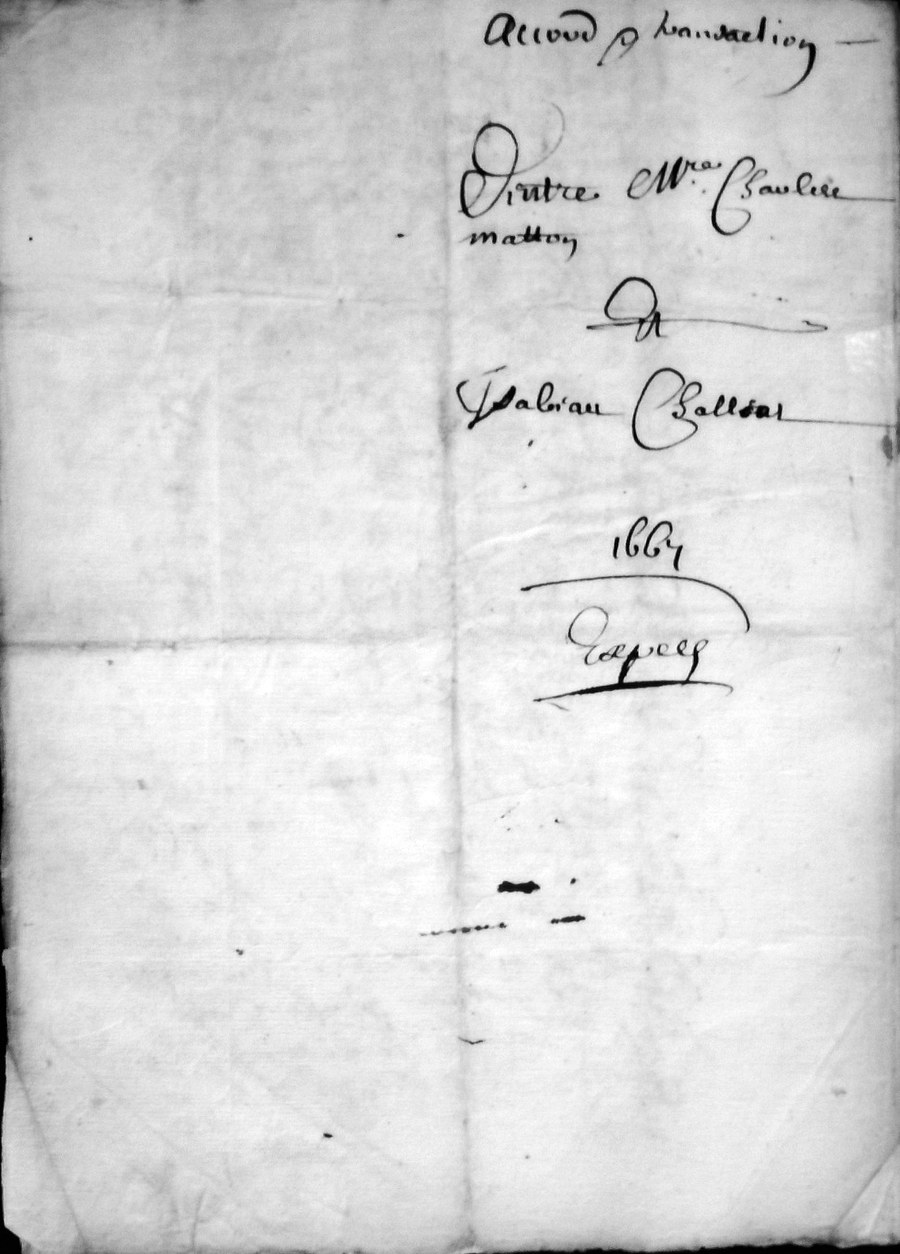 Accord & transaction
D'entre Mre. Charles
matton
Et
Fabian Challot
1667
Exped